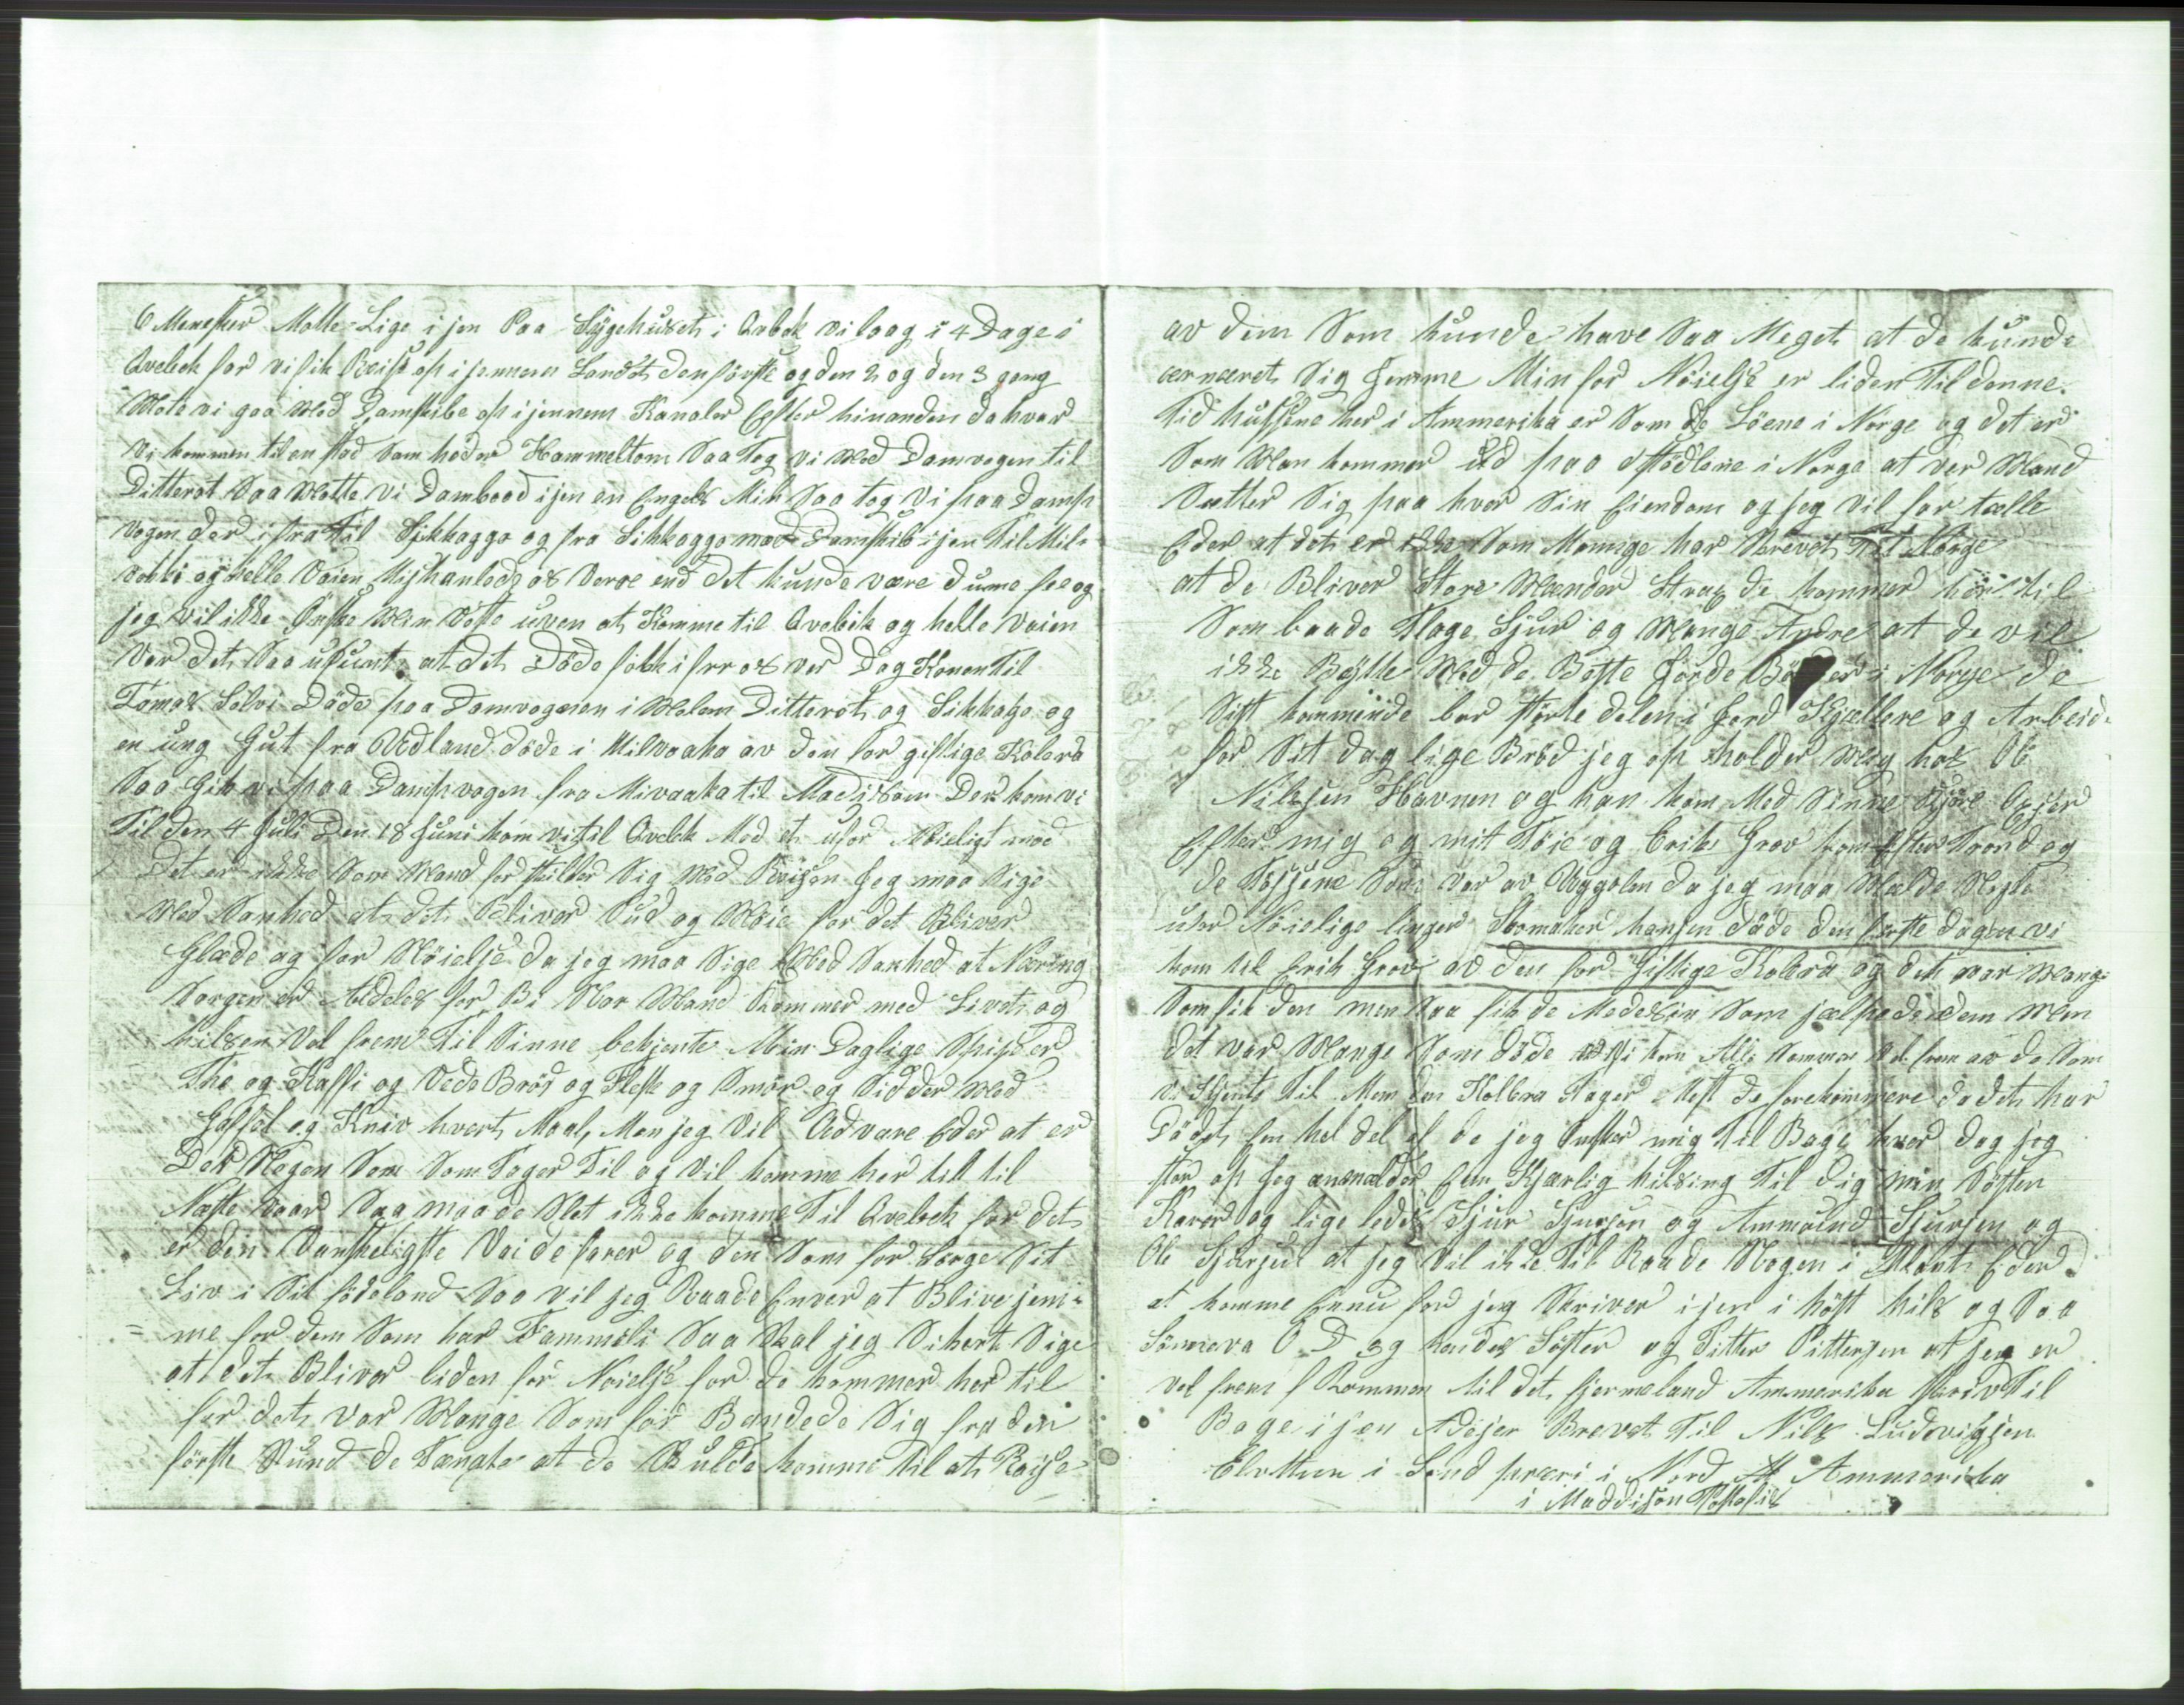 6 Menesker Motte Lige i jen Paa Sygehuset i Qvebek vi laag i 4 Dage i
Qvebek før vi fik Reise op i jennem Landet den første og den 2 og den 3 gang
Motte vi gaa Med Damskibe op i jennem Kanaler Efter hinanden da hvar
Vi kommen til en stad Som heder Hammeltom Saa Tog vi Med Damvogen til
Ditterot Saa Motte vi Dambaad i jen en Engels Mik Saa tog vi paa Damp
vogen der i fra Til Sikkaggo og fra Sikkaggo med Damskib i jen Til Mil-
vokki og helle Vaien Mishanlede os Verre end det kunde være dume fee og
jeg vil ikke Ønske Min Veste uven at Komme til Qvebek og helle Vaien
Var det Saa usunt at det Døde folk i fra os ver Dag Konen Til
Tomas Sølvi Døde paa Damvognen i Melem Ditterot og Sikkago og
en ung Gut fra Vedland døde i Milvaaka av den for giftige Kolera
Saa Gik vi paa Dampvogen fra Mivaaka til Madison Der kom vi
Til den 4 Juli Den 18 Juni kom vi til Qvebek Med et ufor Nøieligt mod
Det er ikke Som Mand for stiller Sig Med Reisen Jeg maa Sige
Med Sanhed at det Bliver Sud og Møie før det Bliver
Glæde og for Nøielse da jeg maa Sige Med Sanhed at Næring
Sorgen er Aldeles for Bi Nar Mand Kommer med Livet og
hilsen Vel frem Til Sinne bekjente Min Daglige Spise er
The og Kaffi og Vede Brød og Flesk og Smør og Sidder Med
Gaffel og Kniv hvert Maal, Men jeg Vil Advare Eder at er
Der Nogen Som Som Tager Til og Vil komme her till til
Neste Vaar Saa maa de Slet ikke komme Til Qvebek for det
er den Vanskeligste Vai de farer og den Som for Lørge Sit
Liv i Sit fødeland Saa vil jeg Raade Enver at Blive jem-
= me for dem Som har Fammeli Saa Skal jeg Sikert Sige
at det Bliver liden for Nøielse for de kommer her til
for det var Mange Som for Bandede Sig fra den
første Stund de Tænkte at de Skulde komme til at Reise
av dem Som kunde have Saa Meget at de kunde
ærnæret Sig Jemme Min for Nøielse er liden Til denne
Tid hussene her i Ammerika er Som de Løene i Norge og det er
Som Man kommer Ud paa Stødlene i Norge at ver Mand
Sætter Sig paa hver Sin Eiendom og jeg vil for tælle
Eder at det er ikke Som Mannge har Skrevet Til Norge
at de Bliver Store Mænder Strax de kommer hær til
Som baade Flage Sjur og Mange Andre at de vil
ikke Bytte Med de Beste Jorde i Norge de
Sist kommende bor største delen i Jord Kjællere og Arbeide
for Sit dag lige Brød jeg op holder Meg hos Ole
Nilsjen Havnen og han kom Med Sinne Kjøre Øxer
Efter mig og mit Tøie og Erik Grov kom efter Trond og
de Tøssene Som var av Myggelen da jeg maa Melde Nogle
ufor Nøielige linger Skomaker Hansen døde den første dagen vi
kom til Erik Grov av den for Giftige Kolera og det var Mange
Som fik den men Saa fik de Medesin Som jælpede dem Men
det var Mange Som døde Vi kan Alle kommer Vel frem av de Som
Vi Kjente Til Men den Kollera Tager Mest de forekommere da det har
Dødet Een hel del af de jeg Ønsker mig Til Bage hver dag jeg
stor op Jeg anmælder Een Kjærlig hilsing Til dig min Søster
Karer og lige ledes Sjur Sjursøn og Ammund Sjursen og
Ole Sjursen at jeg Vil ikke Til Raade Nogen i Blant Eder
at komme Ennu før jeg Skriver i jen i høst hils og Saa
Sønneva O D og hendes Søster og Pitter Pittersen at jeg er
vel frem kommen til det fjerneland Ammerika Skriv Til
Bage i jen Adejer Brevet Til Nils Ludvigsen
i Lind præri i Nord Ammerika
i Maddison Postofis